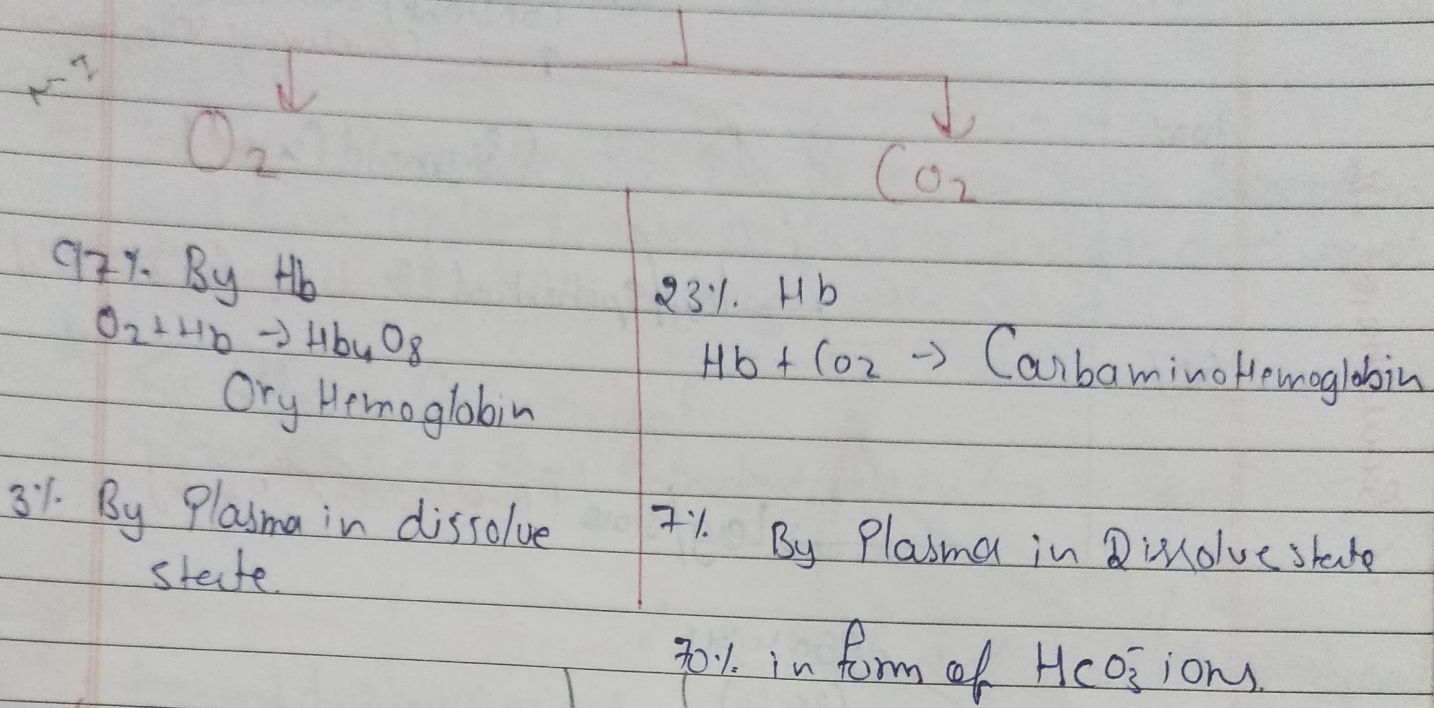 O2
CO2
97% By Hb
O2 + Hb → Hb4O8
Oxy Hemoglobin
3% By Plasma in dissolve
state
23% Hb
Hb + CO2 → CarbaminoHemoglobin
7% By Plasma in Dissolve state
70% in form of HCO3⁻ ions.